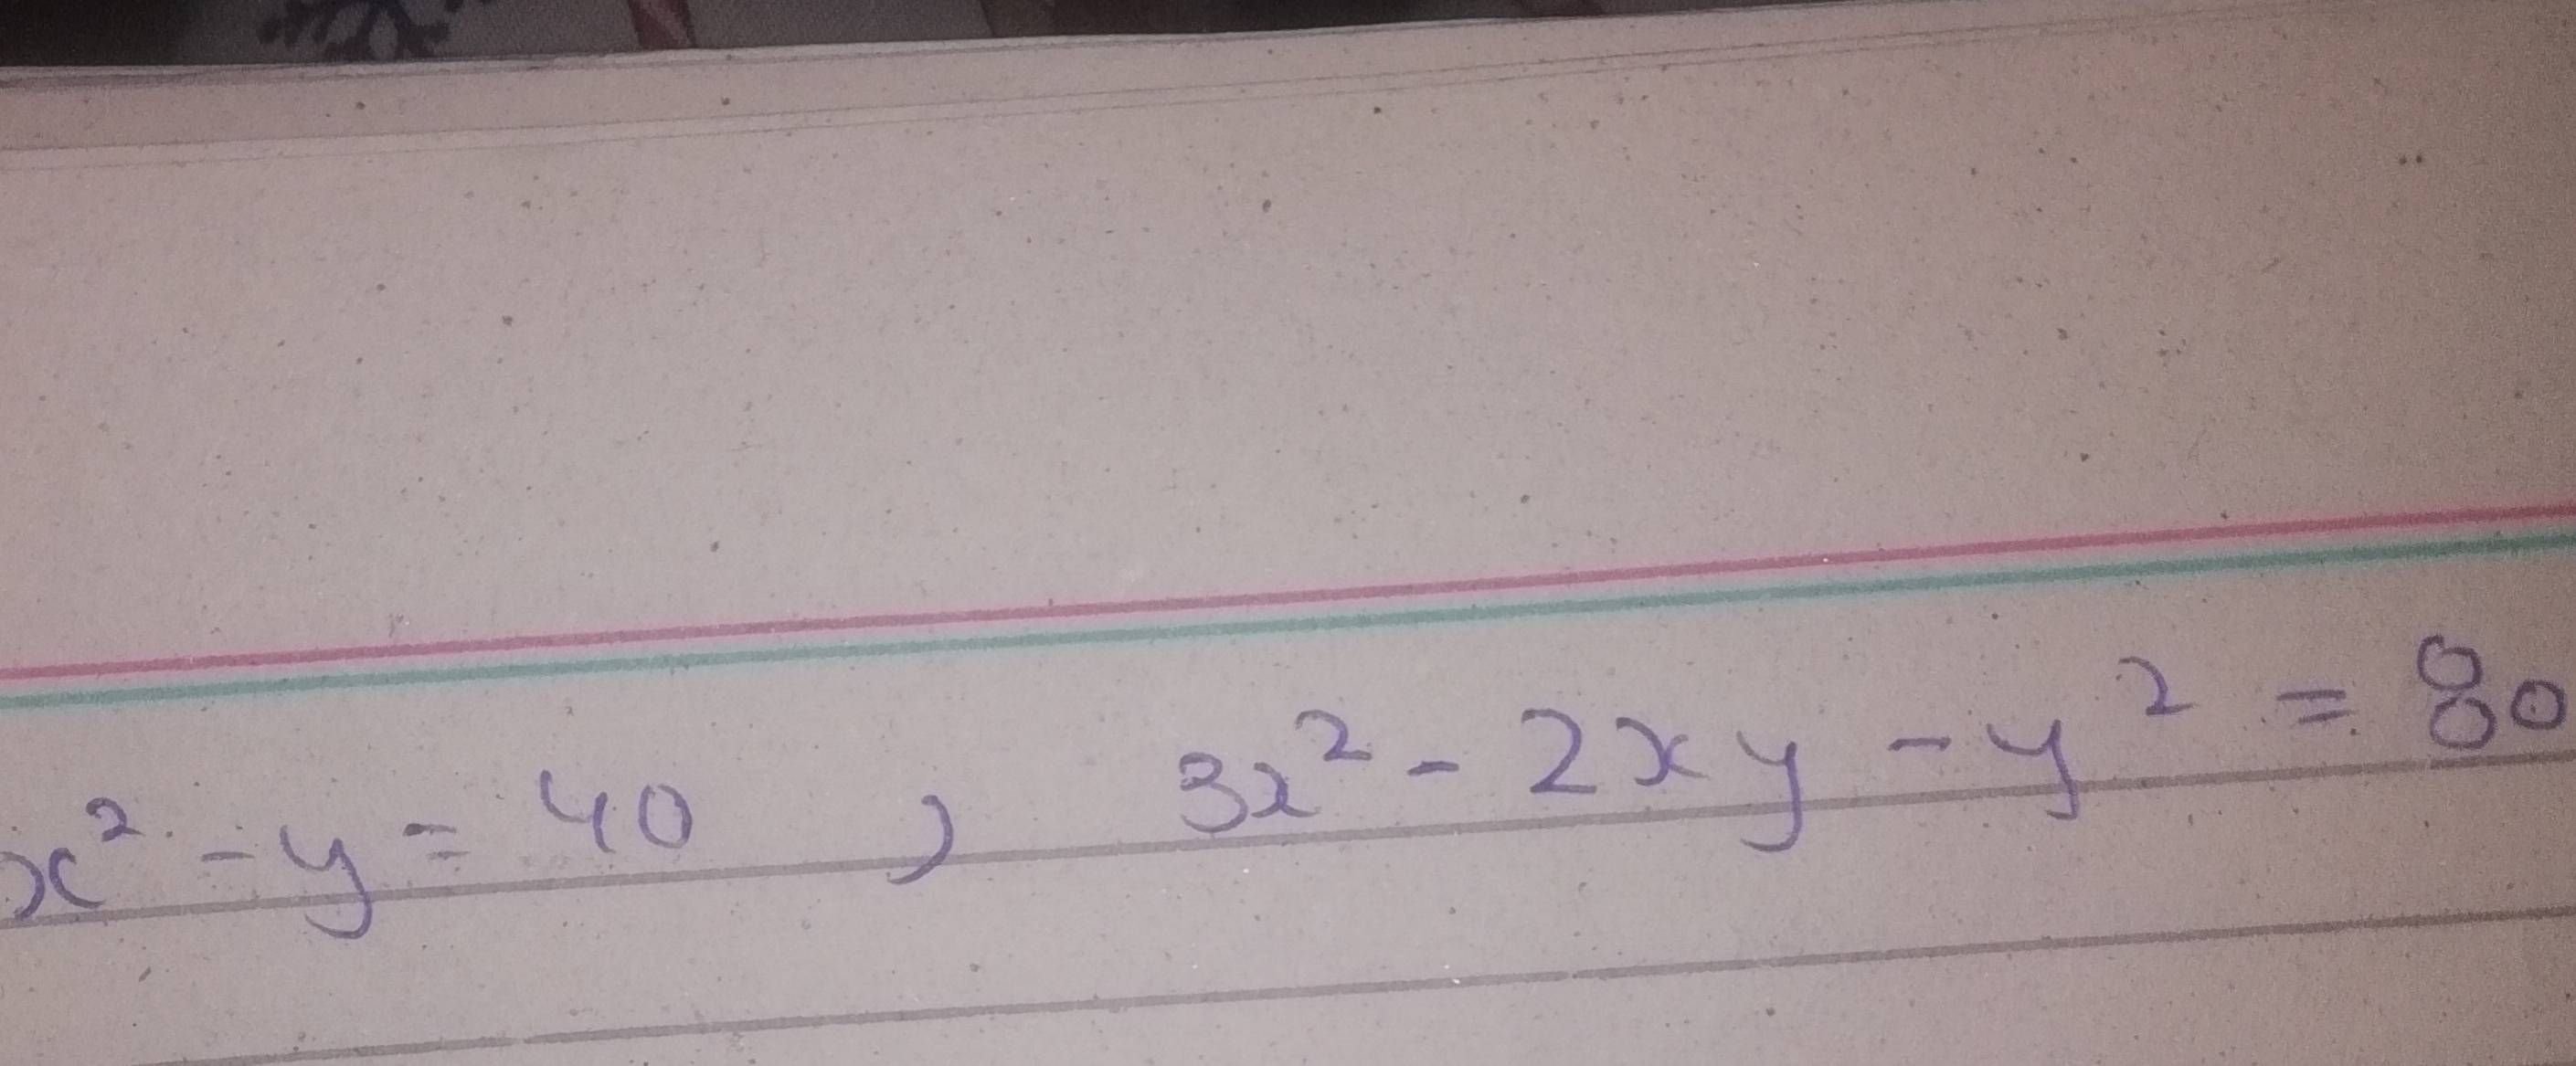 x² - y = 40 , 3x² - 2xy - y² = 80